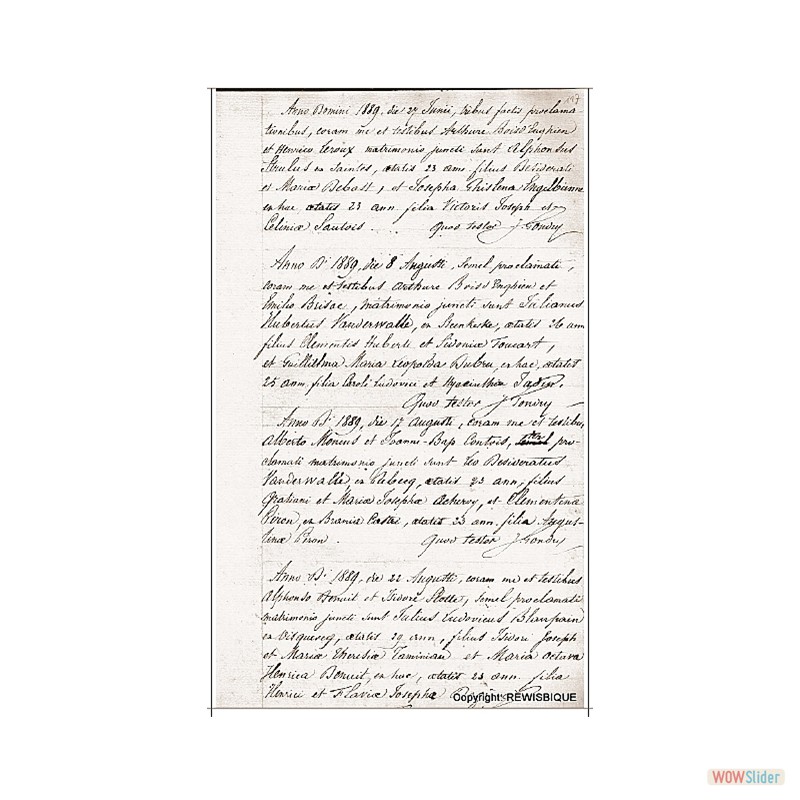 147
Anno Domini 1889, die 27 Junii, tribus factis proclama
tionibus, coram me et testibus Arthure Boisd'Enghien
et Henrico Leroux matrimonio juncti sunt Alphonsus
Strulus ex Saintes, ætatis 23 ann filius Desiderati
et Mariæ Debast, et Josepha Ghislena Engelbienne
ex hac ætatis 23 ann. filia Victoris Joseph et
Celiniæ Sautois . . . Quod testor J. Gondry
Anno Di 1889, die 8 Augusti, semel proclamati,
coram me et testibus Arthure Boisd'Enghien et
Emilio Brisac, matrimonio juncti sunt Julianus
Hubertus Vanderwalle, ex Steenkeske, ætatis 26 ann
filius Clementis Huberti et Sidoniæ Toucart,
et Guillilma Maria Leopolda Dubru, ex hac, ætatis
25 ann. filia Caroli Ludovici et Hyacinthiæ Jadin.
Quod testor J. Gondry
Anno Di 1889, die 17 Augusti, coram me et testibus
Alberto Moneus et Joanni-Bap Contois, pro-
clamati matrimonio juncti sunt Leo Desideratus
Vanderwalle, ex Rebecq, ætatis 23 ann, filius
Gratiani et Mariæ Josephæ , et Clementina
Piron, ex Brania Castri, ætatis 23 ann. filia Augus-
tinæ Piron . Quod testor J. Gondry
Anno Di 1889, die 22 Augusti, coram me et testibus
Alphonso Bonuit et Isidore Stollet, semel proclamati
matrimonio juncti sunt Julius Ludovicus Blampain
ex Virginecq, ætatis 29 ann, filius Isidori Joseph
et Mariæ Theresiæ Taminiau et Maria Octava
Henrica Bonuit, ex hac, ætatis 23 ann. filia
Henrici et Flaviæ Josephæ
Copyright: REWISBIQUE
WOWSlider